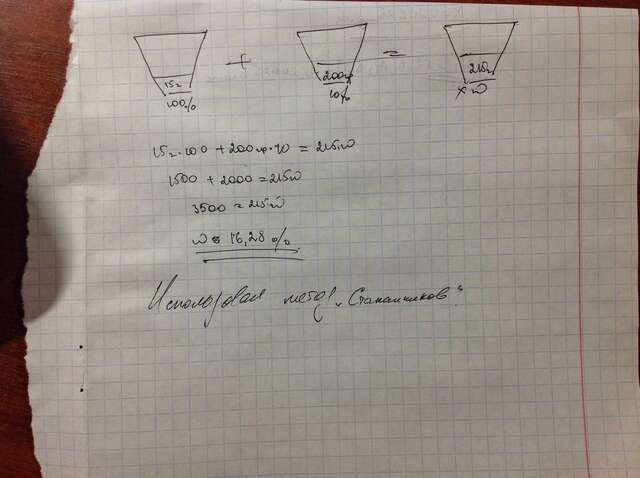 15г + 200гр = 215г
100% 10% x ω
15г·100 + 200гр·10 = 215ω
1500 + 2000 = 215ω
3500 = 215ω
ω = 16,28 %
Использовал метод „Стаканчиков".